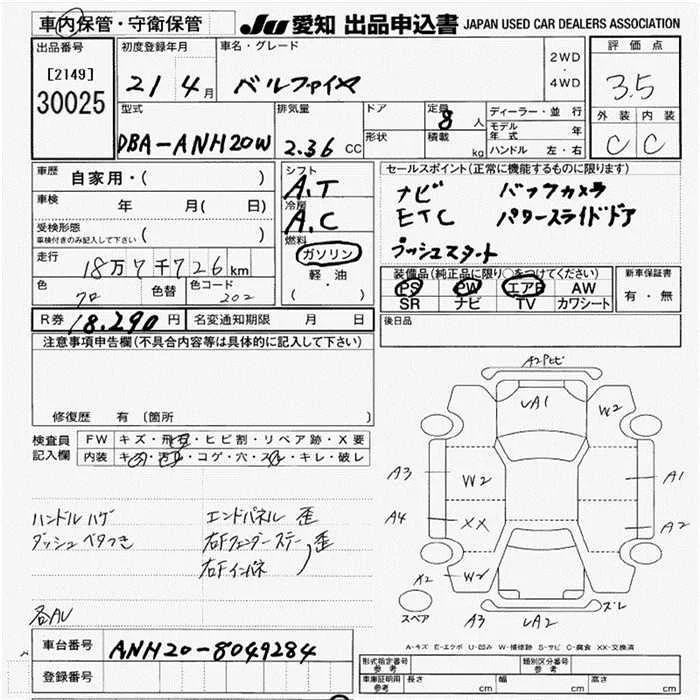 車内保管・守衛保管 JU 愛知 出品申込書 JAPAN USED CAR DEALERS ASSOCIATION
出品番号 初度登録年月 車名・グレード 評価点
[2149] 30025 21 4月 ベルファイヤ 2WD ・ 4WD 3.5
型式 排気量 ドア 定員 8人 ディーラー・並行 外装 内装
DBA-ANH20W 2.36 CC 形状 積載 kg モデル年式 年 C C
ハンドル 左・右
車歴 自家用・( ) シフト A.T セールスポイント(正常に機能するものに限ります)
車検 年 月( 日) 冷房 A.C ナビ バックカメラ
受検形態 ETC パワースライドドア
車検付きのみ記入して下さい 燃料 ガソリン プッシュスタート
走行 18万7千726km 軽・油 装備品(純正品に限り○をつけてください) 新車保証書
色 クロ 色替 色コード 202 ・( ) PS PW エアB AW 有・無
SR ナビ TV カワシート
R券 18.290円 名変通知期限 月 日 後日品
注意事項申告欄(不具合内容等は具体的に記入して下さい)
修復歴 有 (箇所 )
検査員記入欄 FW キズ・飛石・ヒビ割・リペア跡・X要
内装 キズ・汚れ・コゲ・穴・スレ・キレ・破レ
ハンドルハゲ エンドパネル 歪
ダッシュベタつき 右Fフェンダーステー 歪
右Fインパネ
各AU
A2トビ
UA1 W2
A3 W2 A1
A4 XX A2
X2 W2
スペア A3 UA2 ズレ
A-キズ E-エクボ U-凹み W-補修跡 S-サビ C-腐食 XX-交換済
車台番号 ANH20-8049284
登録番号
形式指定番号 参考 類別区分番号 参考
車庫証明用 参考 長さ cm 幅 cm 高さ cm